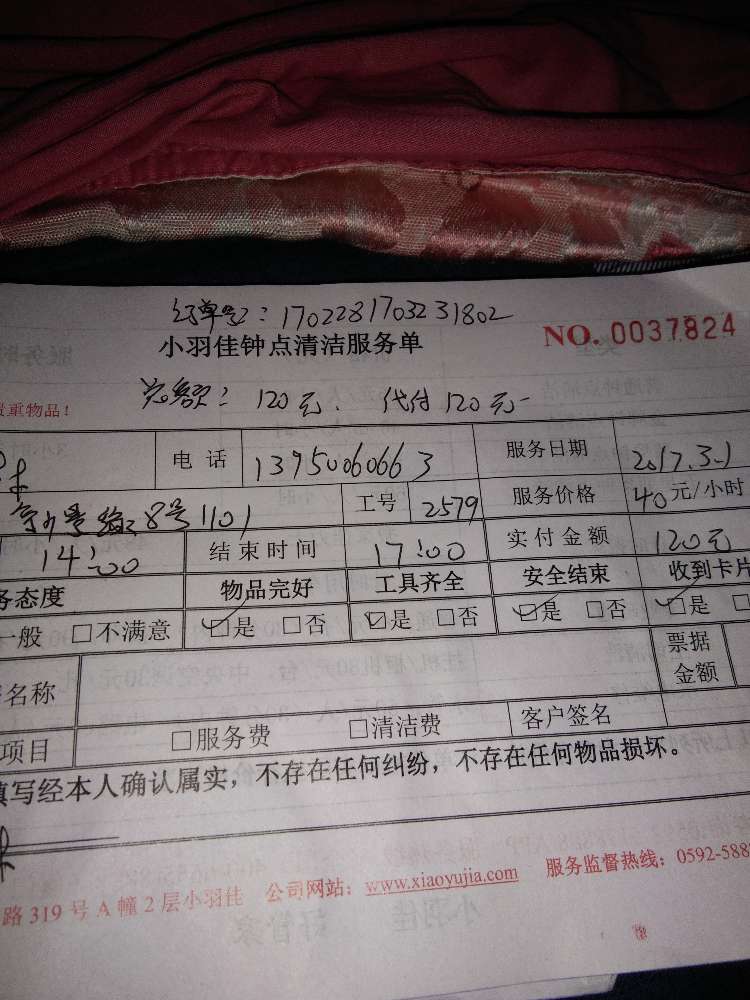 订单号：170228170323 1802
小羽佳钟点清洁服务单
NO. 0037824
总额：120元. 代付120元
贵重物品！
电话 13950060663 服务日期 2017.3.1
8号1101 工号 2579 服务价格 40元/小时
14:00 结束时间 17:00 实付金额 120元
务态度 物品完好 工具齐全 安全结束 收到卡片
一般 □不满意 ☑是 □否 ☑是 □否 ☑是 □否 ☑是 □
名称 票据金额
项目 □服务费 □清洁费 客户签名
填写经本人确认属实，不存在任何纠纷，不存在任何物品损坏。
路319号A幢2层小羽佳 公司网站：www.xiaoyujia.com 服务监督热线：0592-588